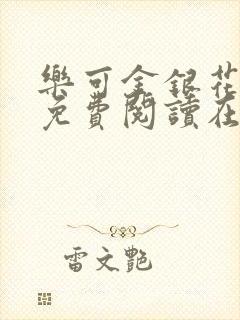 樂可金銀花
免費閱讀在
雷文艷